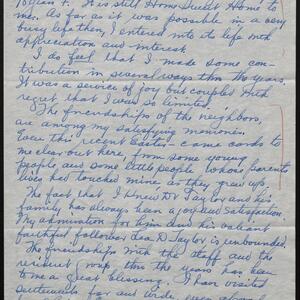 It is still Home Sweet Home to
me. As far as it was possible in a very
busy life then, I entered into its life with
appreciation and interest.
I do feel that I made some con-
tribution in several ways thru the years.
It was a service of joy but coupled with
regret that I was so limited.
The friendships of the neighbors,
are among my satisfying memories.
Even this recent Easter - came cards to
me clear out here, from some young
people and some little people whose parents
lives had touched mine, as they grew up.
The fact that I knew Dr Taylor and his
family has always been a joy and satisfaction.
My admiration for him and his valiant
faithful follower Lea D Taylor is unbounded.
The friendships with the staff and the
resident group thru the years has been
to me a great blessing. I have visited
far and wide